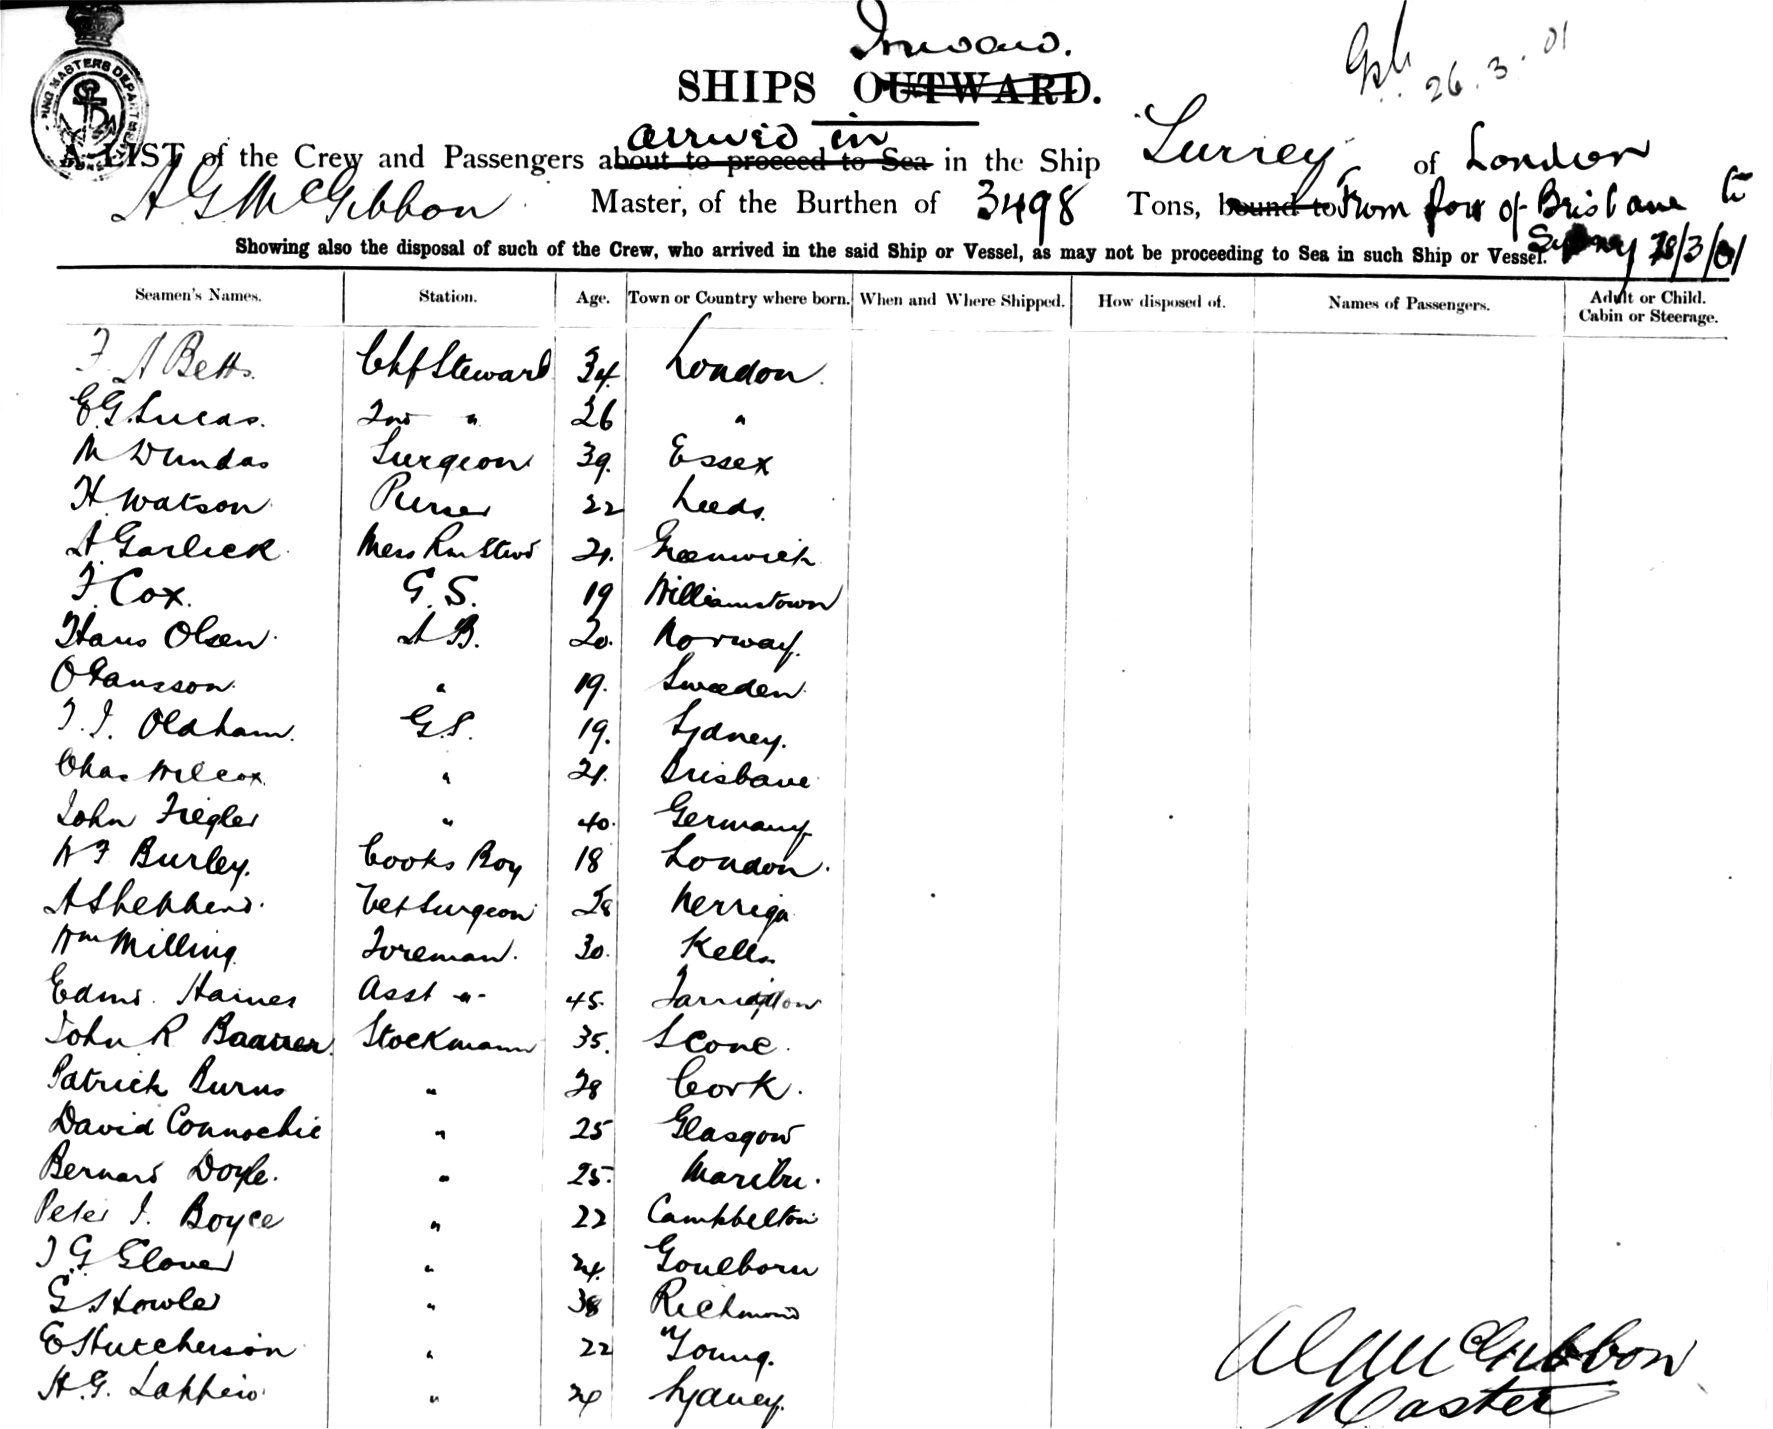 Inward.
SHIPS OUTWARD.
26.3.01
SHIPPING MASTERS DEPARTMENT
arrived in
A LIST of the Crew and Passengers about to proceed to Sea in the Ship "Surrey" of London
A G McGibbon Master, of the Burthen of 3498 Tons, bound to From Port of Brisbane to
Showing also the disposal of such of the Crew, who arrived in the said Ship or Vessel, as may not be proceeding to Sea in such Ship or Vessel. Sydney /3/01
Seamen's Names. Station. Age. Town or Country where born. When and Where Shipped. How disposed of. Names of Passengers. Adult or Child. Cabin or Steerage.
F A Betts. Chf Steward 34 London.
E G Lucas. 2nd " 26 "
M Dundas Surgeon 39. Essex
H Watson Purser 22 Leeds.
A Garlick Mess Rm Stwd 21. Greenwich
F. Cox. G. S. 19 Williamstown
Hans Olsen A B. 20. Norway.
O Hansson " 19. Sweden
T. J. Oldham. G.S. 19. Sydney.
Chas Wilcox " 21. Brisbane
John Fiegler " 40. Germany
W F Burley. Cooks Boy 18 London.
A Shepherd. Vet Surgeon 28 Nerriga
Wm Milling Foreman. 30. Kells
Edmd. Haines Asst " 45.
John R Stockmann 35. Scone.
Patrick Burns " 28 Cork.
David Connochie " 25 Glasgow
Bernard Doyle. " 25.
Peter J. Boyce " 22 Campbelton
J. G. Glover " 24. Goulborn
G Howler " 38 Richmond
E Hutcherson " 22 Young.
H. G. " 24 Sydney.
A G McGibbon
Master